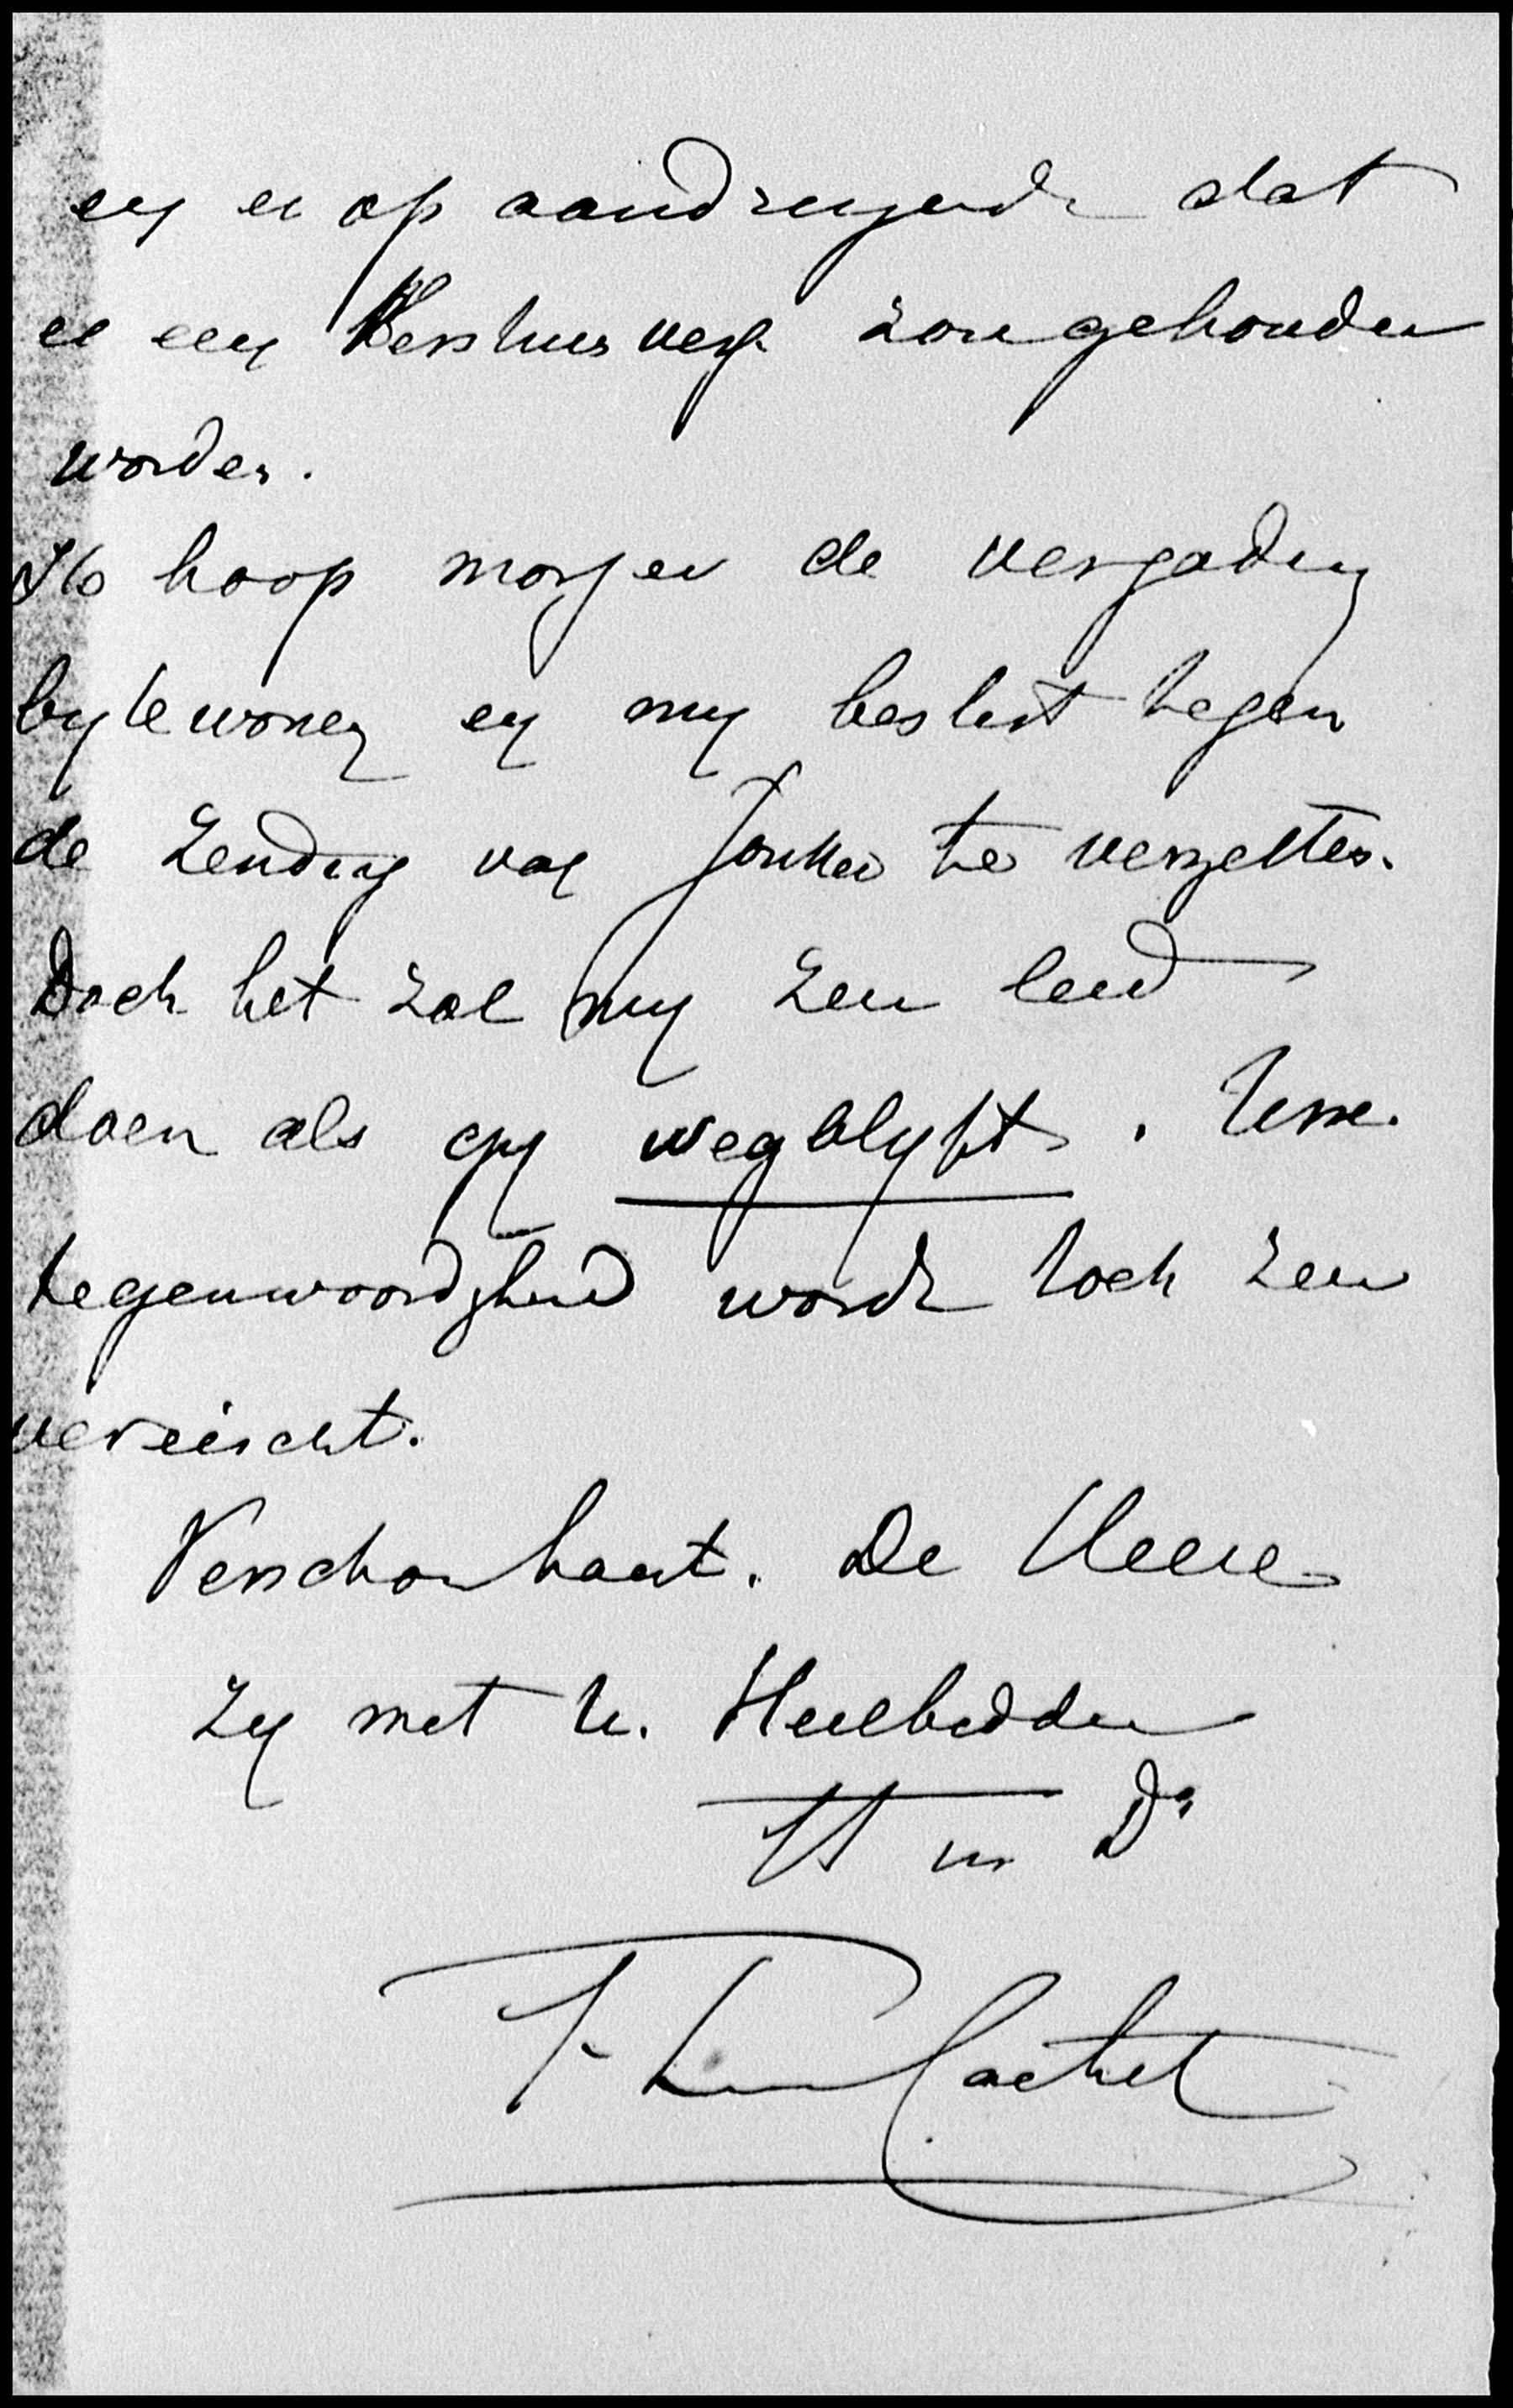 en er op aandringende dat
er een Bestuursverg. zou gehouden
worden.
Ik hoop morgen de vergadering
bijtewonen en mij beslist tegen
de zending van Jonker te verzetten.
Doch het zal mij zeer leed
doen als gij wegblijft. Uwe
tegenwoordigheid wordt toch zeer
vereischt.
Verschoon haast. De Heere
zij met u. Heilbiddend
tt in Do
F Lion Cachet